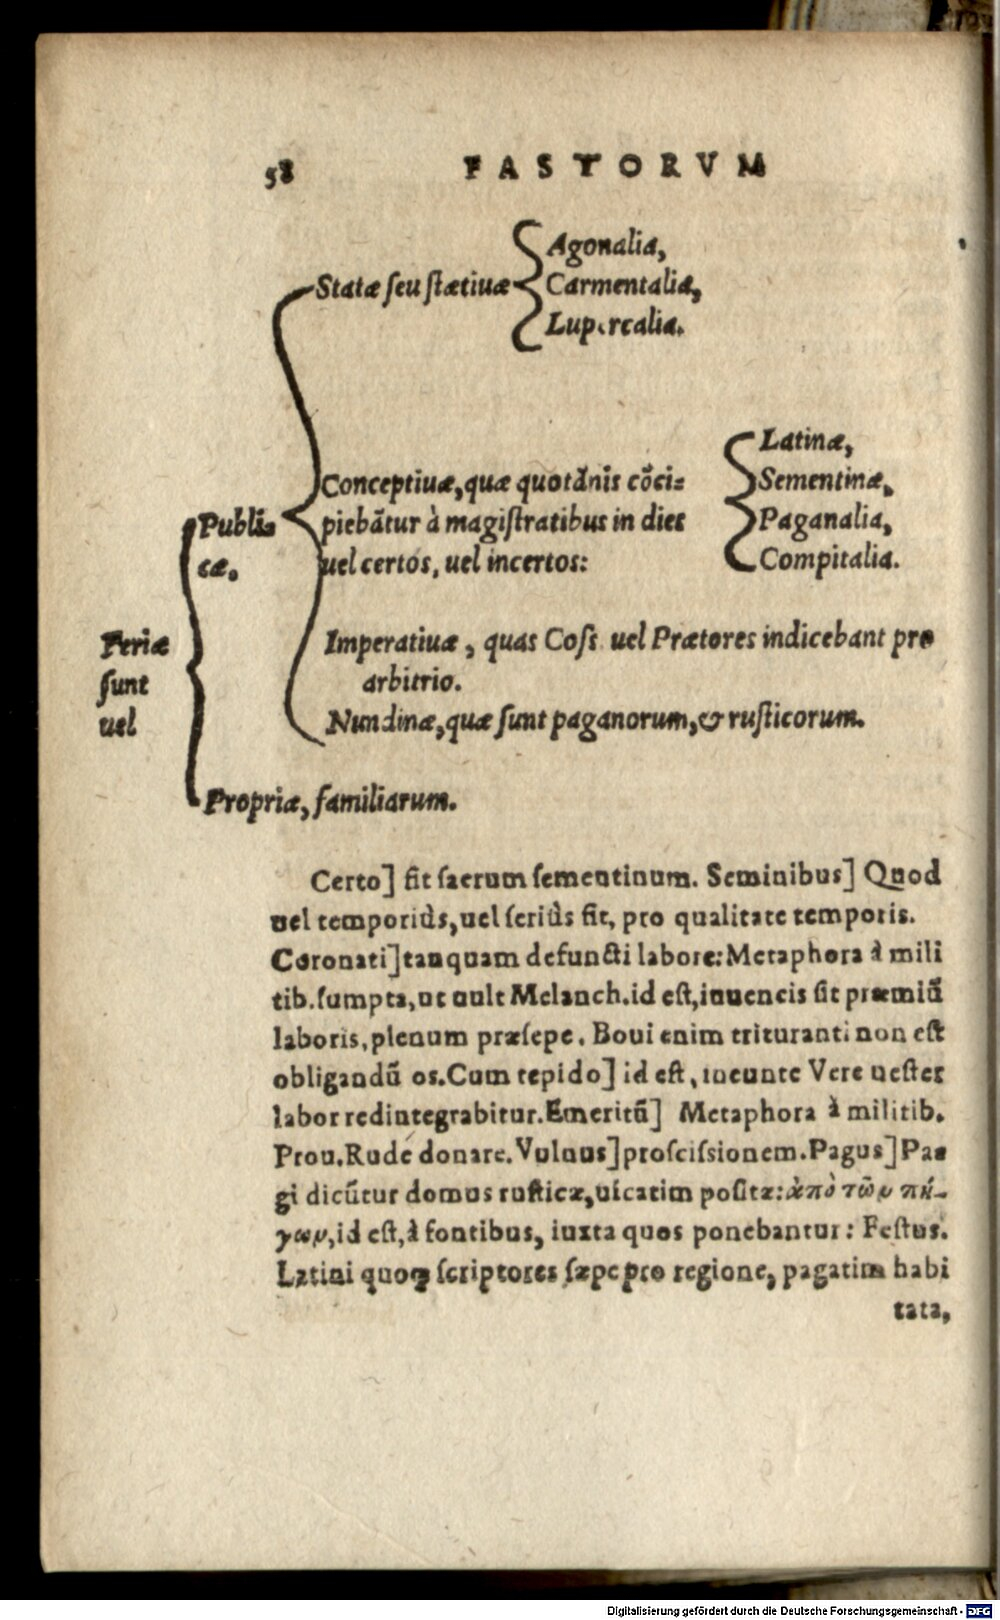 58 FASTORVM
Agonalia,
Statæ seu stætiuæ Carmentalia,
Lupercalia.
Latinæ,
Conceptiuæ, quæ quotãnis cõci=
Sementinæ,
Publi=
piebãtur à magistratibus in dies
Paganalia,
cæ.
uel certos, uel incertos:
Compitalia.
Feriæ
sunt
uel
Imperatiuæ, quas Coss. uel Prætores indicebant pro
arbitrio.
Nundinæ, quæ sunt paganorum, & rusticorum.
Propriæ, familiarum.
Certo] sit sacrum sementinum. Seminibus] Quod
uel temporiùs, uel seriùs fit, pro qualitate temporis.
Coronati] tanquam defuncti labore: Metaphora à mili
tib. sumpta, ut uult Melanch. id est, iuuencis sit præmiũ
laboris, plenum præsepe. Boui enim trituranti non est
obligandũ os. Cum tepido] id est, ineunte Vere uester
labor redintegrabitur. Emeritũ] Metaphora à militib.
Prou. Rude donare. Vulnus] proscissionem. Pagus] Pa=
gi dicũtur domus rusticæ, uicatim positæ: ἀπὸ τῶν πή-
γων, id est, à fontibus, iuxta quos ponebantur: Festus.
Latini quoqꝫ scriptores sæpe pro regione, pagatim habi
tata,
Digitalisierung gefördert durch die Deutsche Forschungsgemeinschaft - DFG